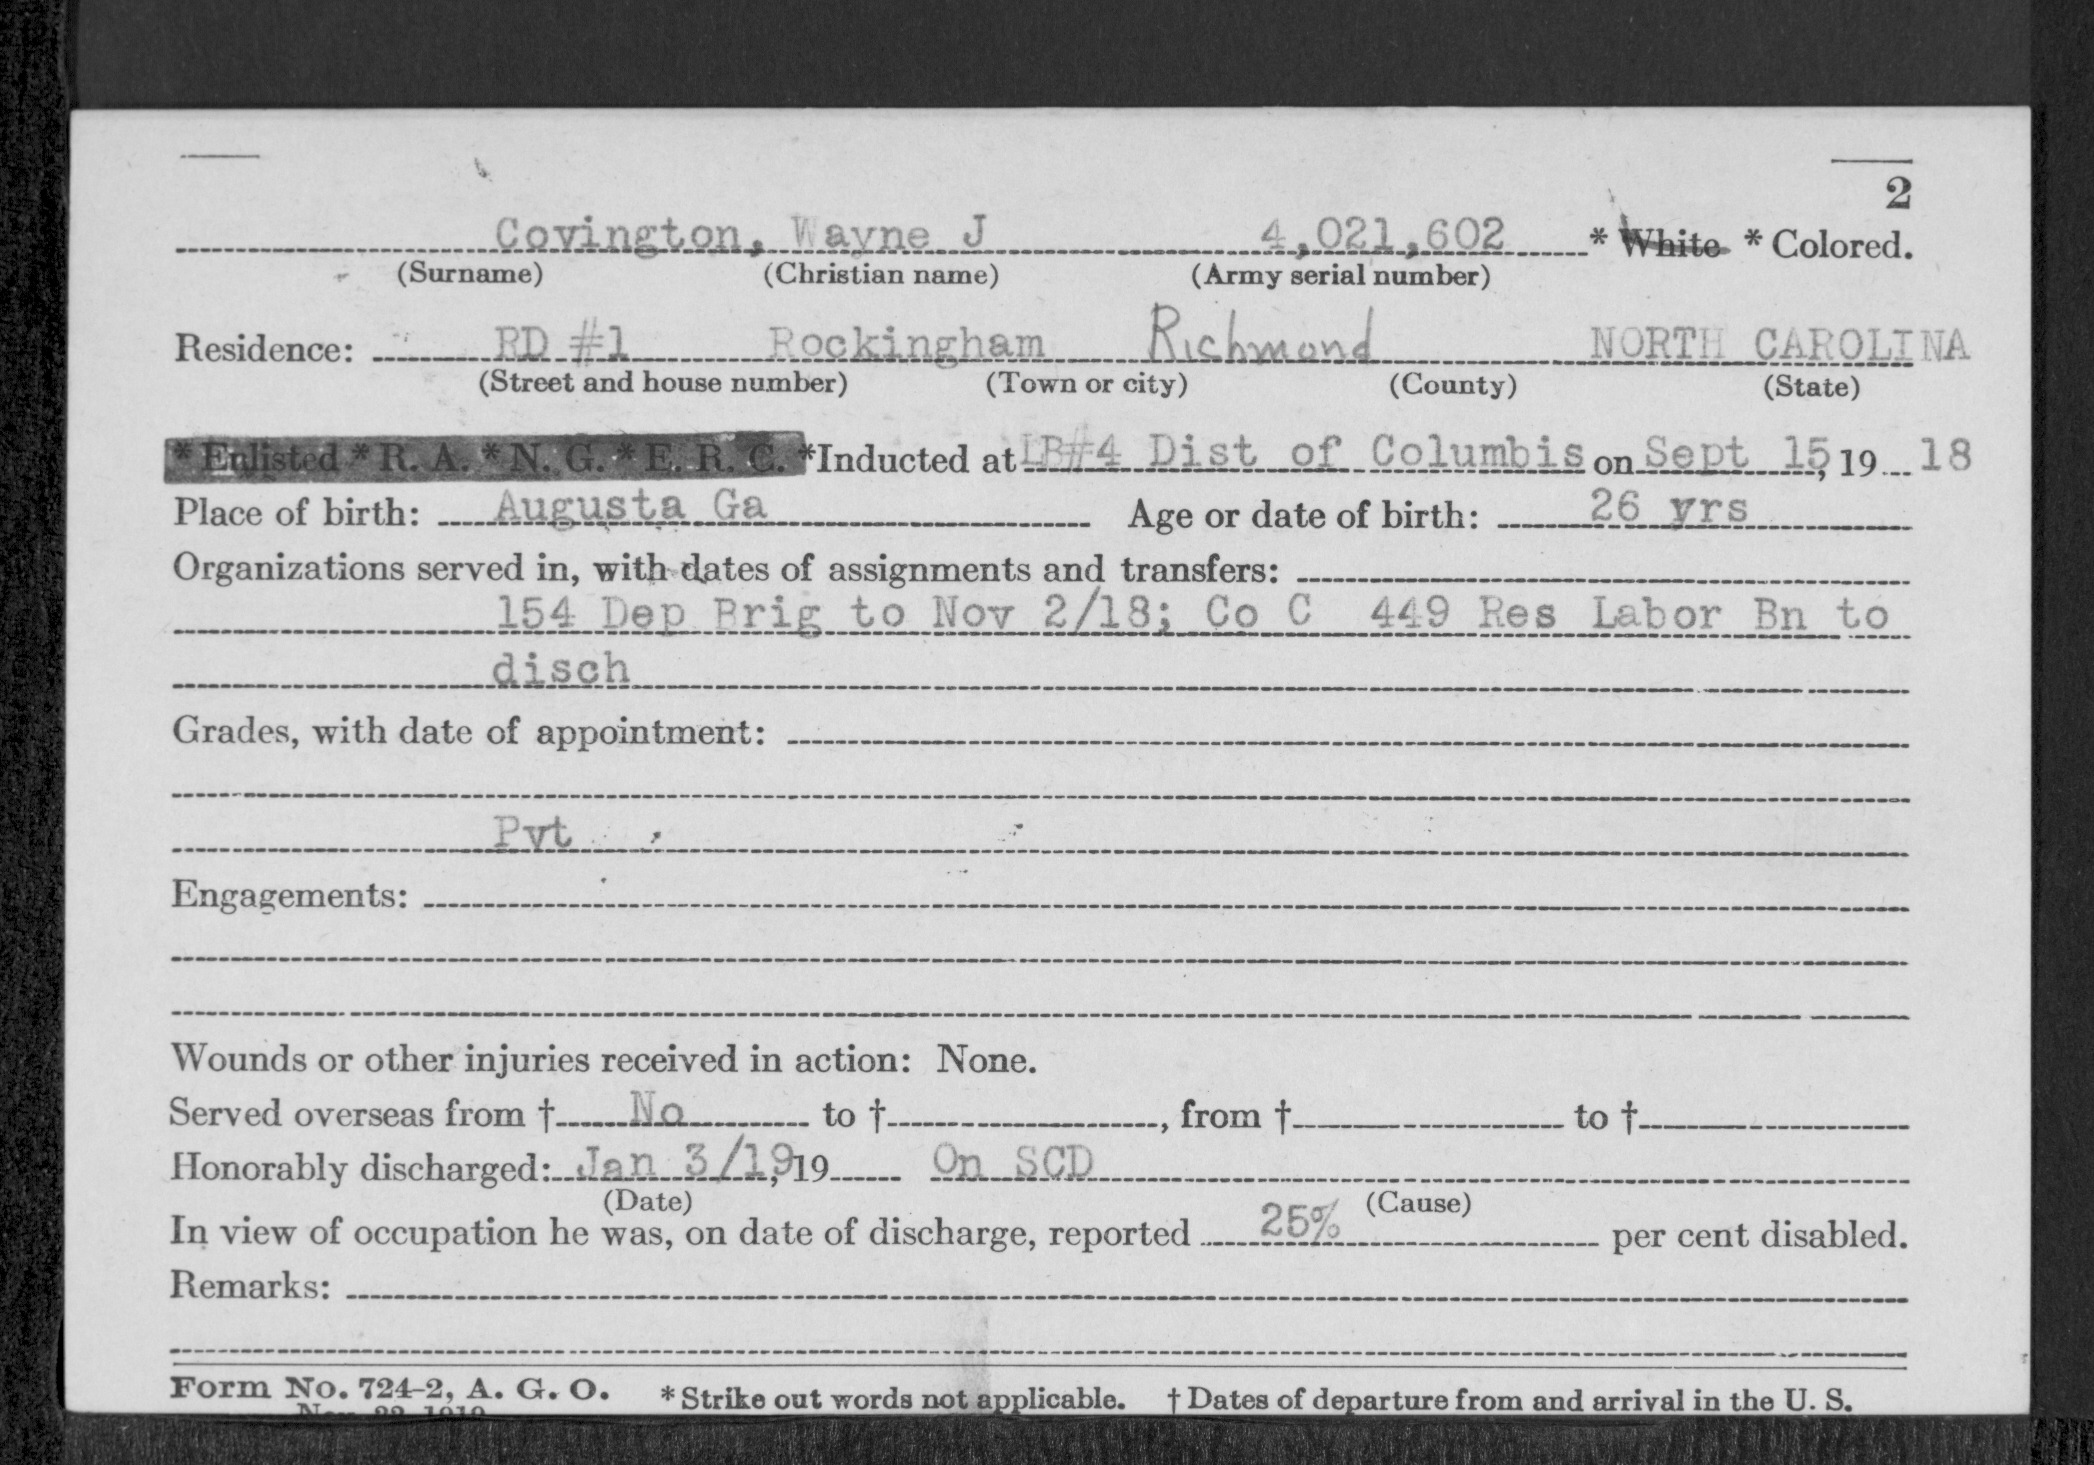 2
Covington, Wayne J 4,021,602 * White * Colored.
(Surname) (Christian name) (Army serial number)
Residence: RD #1 Rockingham Richmond NORTH CAROLINA
(Street and house number) (Town or city) (County) (State)
*Enlisted *R. A. *N. G. *E. R. C. *Inducted at LB#4 Dist of Columbis on Sept 15, 19 18
Place of birth: Augusta Ga Age or date of birth: 26 yrs
Organizations served in, with dates of assignments and transfers:
154 Dep Brig to Nov 2/18; Co C 449 Res Labor Bn to
disch
Grades, with date of appointment:
Pvt
Engagements:
Wounds or other injuries received in action: None.
Served overseas from † No to †, from † to †
Honorably discharged: Jan 3/19, 19 On SCD
(Date) (Cause)
In view of occupation he was, on date of discharge, reported 25% per cent disabled.
Remarks:
Form No. 724-2, A. G. O. * Strike out words not applicable. † Dates of departure from and arrival in the U. S.